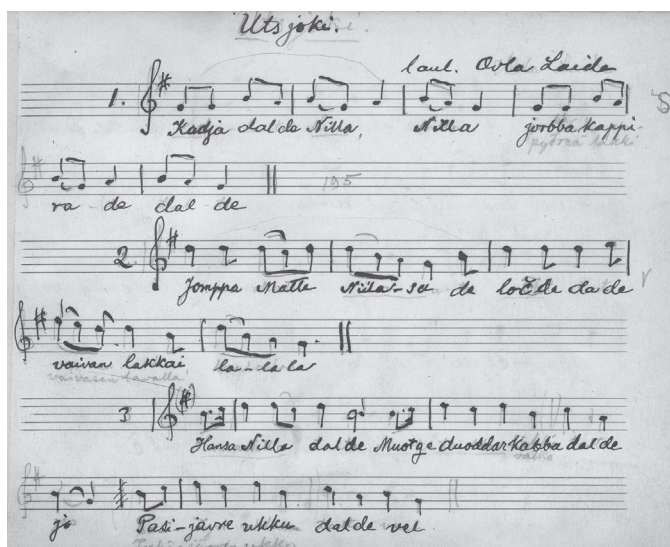 Utsjoki.
laul. Ovla Laide
1.
Kadja dal de Nilla, Nilla jorbba kappi-
ra-de dal de
195
2.
Jomppa Matte Niila-sa deločde da de
vaivan lakkai la-la la
vaivasen tavalla
3
Hansa Nilla dal de Muotge duoddar kabba dal de
jo Pasi-javre ukku dal de vel